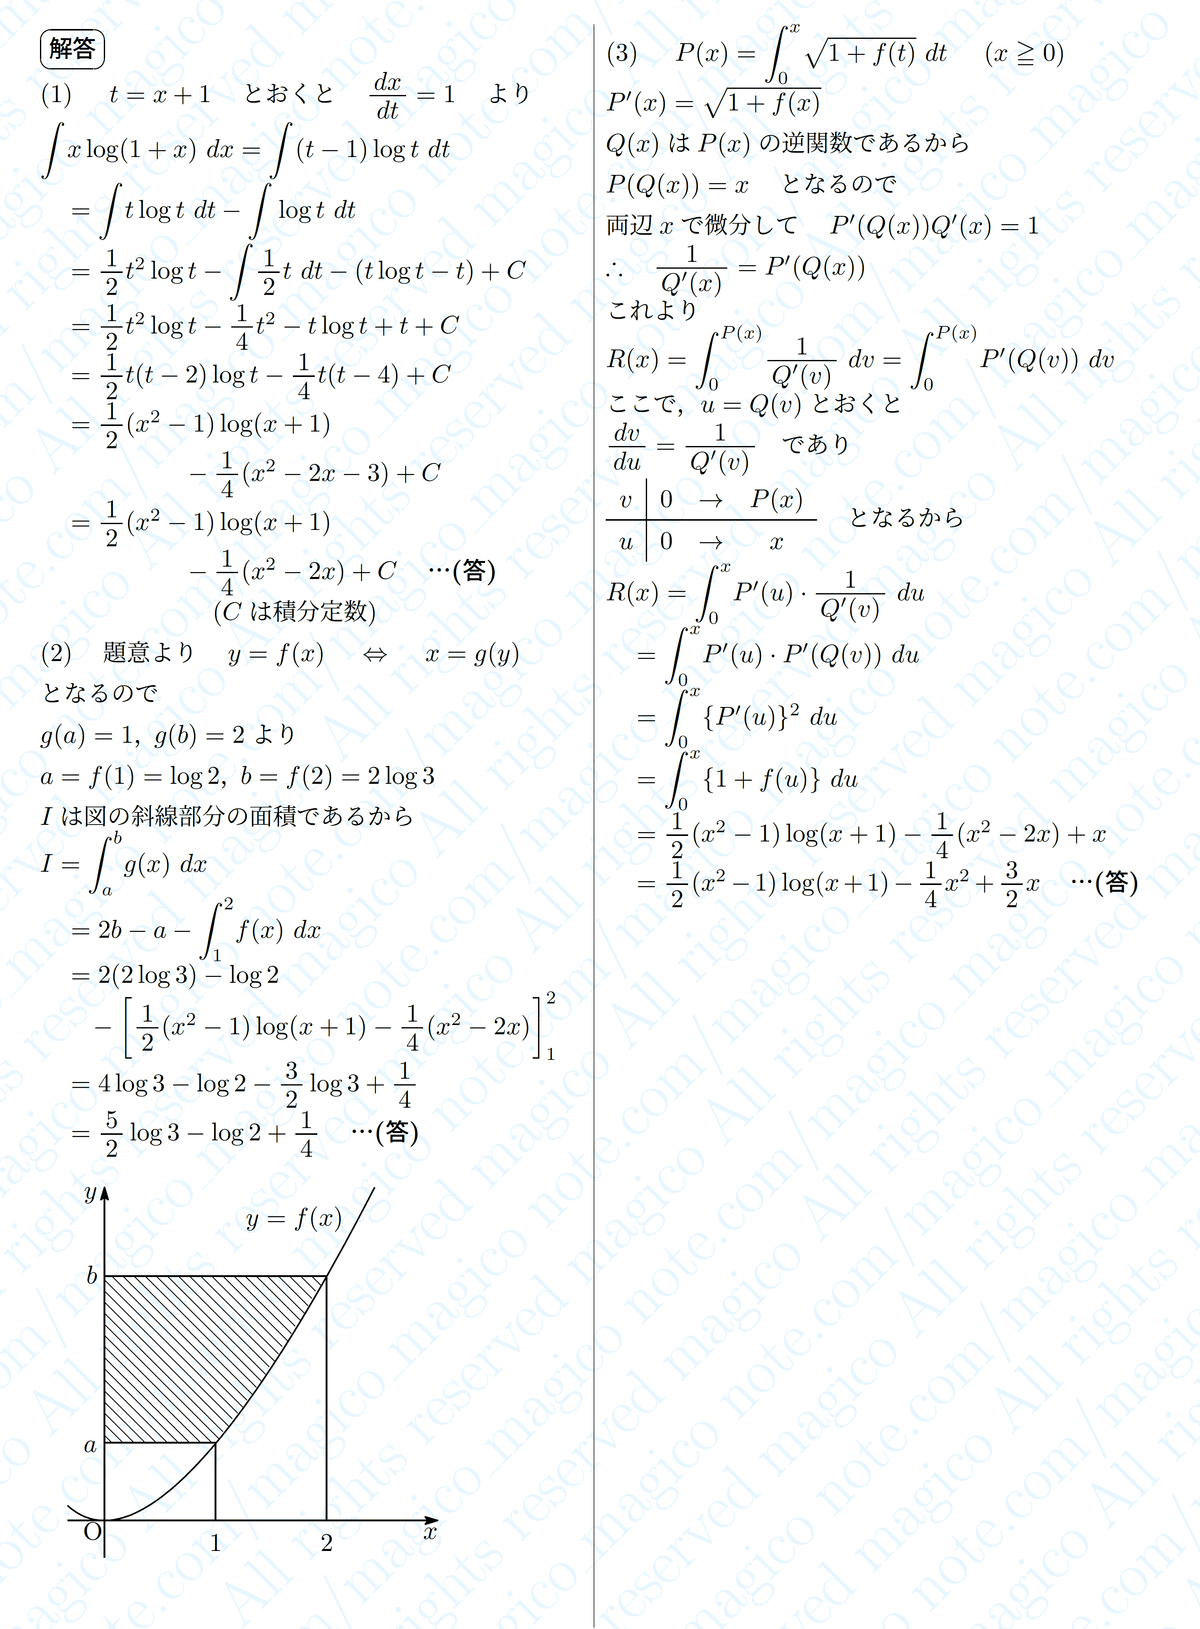 解答
(1) t = x + 1 とおくと dx/dt = 1 より
∫ x log(1 + x) dx = ∫ (t − 1) log t dt
= ∫ t log t dt − ∫ log t dt
= 1/2 t² log t − ∫ 1/2 t dt − (t log t − t) + C
= 1/2 t² log t − 1/4 t² − t log t + t + C
= 1/2 t(t − 2) log t − 1/4 t(t − 4) + C
= 1/2 (x² − 1) log(x + 1)
− 1/4 (x² − 2x − 3) + C
= 1/2 (x² − 1) log(x + 1)
− 1/4 (x² − 2x) + C …(答)
(C は積分定数)
(2) 題意より y = f(x) ⇔ x = g(y)
となるので
g(a) = 1, g(b) = 2 より
a = f(1) = log 2, b = f(2) = 2 log 3
I は図の斜線部分の面積であるから
I = ∫_a^b g(x) dx
= 2b − a − ∫_1^2 f(x) dx
= 2(2 log 3) − log 2
− [1/2 (x² − 1) log(x + 1) − 1/4 (x² − 2x)]_1^2
= 4 log 3 − log 2 − 3/2 log 3 + 1/4
= 5/2 log 3 − log 2 + 1/4 …(答)
y
y = f(x)
b
a
O
1
2
x
(3) P(x) = ∫_0^x √(1 + f(t)) dt (x ≧ 0)
P′(x) = √(1 + f(x))
Q(x) は P(x) の逆関数であるから
P(Q(x)) = x となるので
両辺 x で微分して P′(Q(x))Q′(x) = 1
∴ 1/Q′(x) = P′(Q(x))
これより
R(x) = ∫_0^{P(x)} 1/Q′(v) dv = ∫_0^{P(x)} P′(Q(v)) dv
ここで, u = Q(v) とおくと
dv/du = 1/Q′(v) であり
v | 0 → P(x)
u | 0 → x となるから
R(x) = ∫_0^x P′(u) · 1/Q′(v) du
= ∫_0^x P′(u) · P′(Q(v)) du
= ∫_0^x {P′(u)}² du
= ∫_0^x {1 + f(u)} du
= 1/2 (x² − 1) log(x + 1) − 1/4 (x² − 2x) + x
= 1/2 (x² − 1) log(x + 1) − 1/4 x² + 3/2 x …(答)
note.com/magico_magico All rights reserved